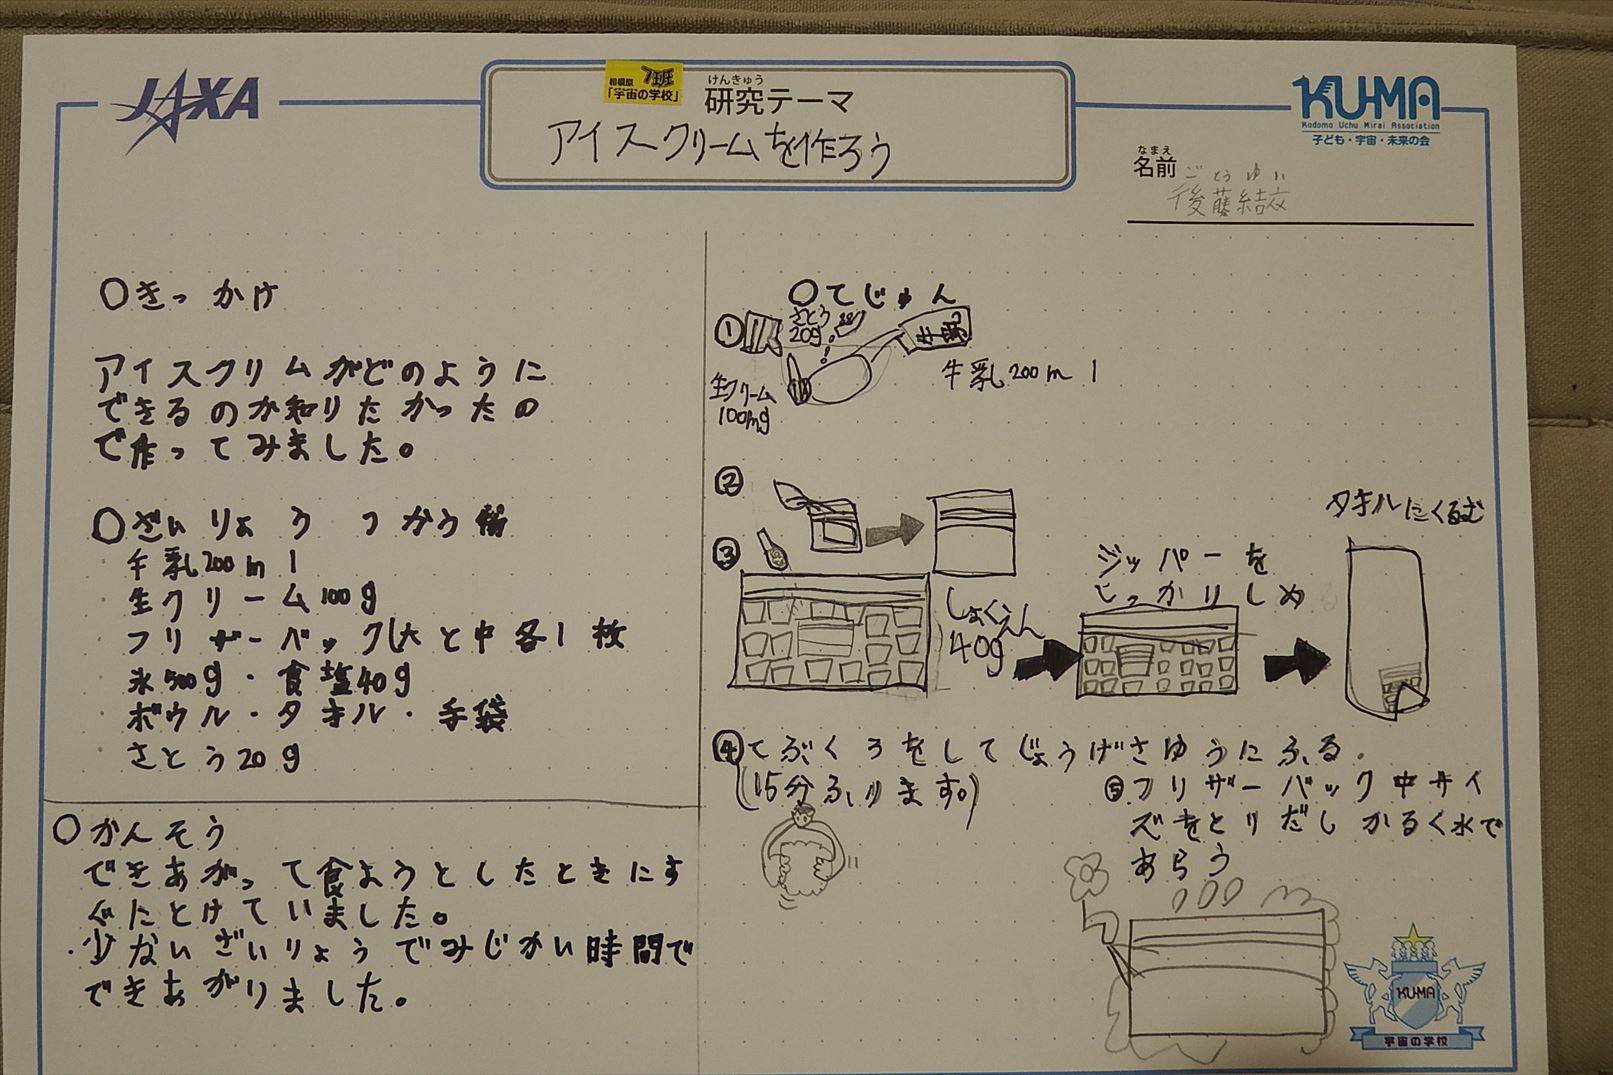 JAXA
相模原 7班
「宇宙の学校」
けんきゅう
研究テーマ
アイスクリームを作ろう
KU-MA
Kodomo Uchu Mirai Association
子ども・宇宙・未来の会
なまえ
名前
ごとうゆい
後藤結衣
○きっかけ
アイスクリムがどのように
できるのか知りたかったの
で作ってみました。
○ざいりょう つかう物
牛乳200ml
生クリーム100g
フリザーバック(大と中各1枚
氷500g・食塩40g
ボウル・タオル・手袋
さとう20g
○かんそう
できあがって食ようとしたときにす
ぐにとけていました。
・少ないざいりょうでみじかい時間で
できあがりました。
○てじゅん
①
さとう
20g
牛乳
生クリーム
100mg
牛乳200ml
②
③
しょくえん
40g
ジッパーを
しっかりしめ
タオルにくるむ
④てぶくろをしてじょうげさゆうにふる.
(15分ふります。)
⑤フリザーバック中サイ
ズをとりだしかるく水で
あらう
KU-MA
宇宙の学校